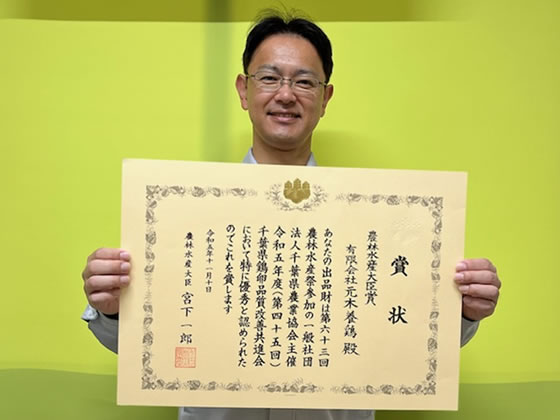 賞状
農林水産大臣賞
有限会社元木養鶏 殿
あなたの出品財は第六十三回
農林水産祭参加の一般社団
法人千葉県農業協会主催
令和五年度(第四十五回)
千葉県鶏卵品質改善共進会
において特に優秀と認められた
のでこれを賞します
令和五年十一月十日
農林水産大臣 宮下一郎